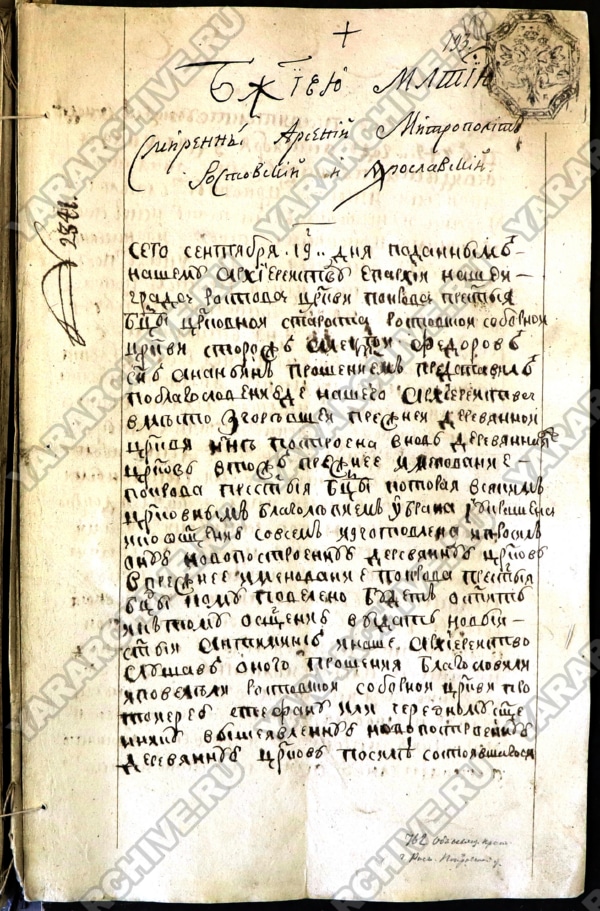 193
Бжїею млтїю
Смиренны Арсений Митрополитъ
Ростовский и Ярославский.
№ 2341.
Сего сентября 19 дня поданнымъ
нашему архїерейству епархїи нашей
града ростова цркви покрова престыя
Бцы црковной староста ростовской соборной
цркви сторожъ Алексей федоровъ
снъ ананьинъ прошениемъ представилъ
по благословенїю де нашего архїерейства
вместо згоревшей прежней деревянной
цркви ннѣ построена вновь деревянная
црковь в тожъ прежнее именование
покрова престыя Бцы которая всякимъ
црковнымъ благолепиемъ убрана
и ко освщению совсемъ изготовлена и просилъ
оную новопостроенную деревянную црковь
в прежнее именование покрова престыя
бцы кому повелено будетъ освятить
и къ тому освщению выдать новый
стый антиминсъ и наше архїерейство
слушавъ оного прошения благословили
и повелели ростовской соборной цркви про
топопу стефану или чередному сще
ннику вышеявленную новопостроенную
деревянную црковь по силе состоявшагося
762
YARARCHIVE.RU